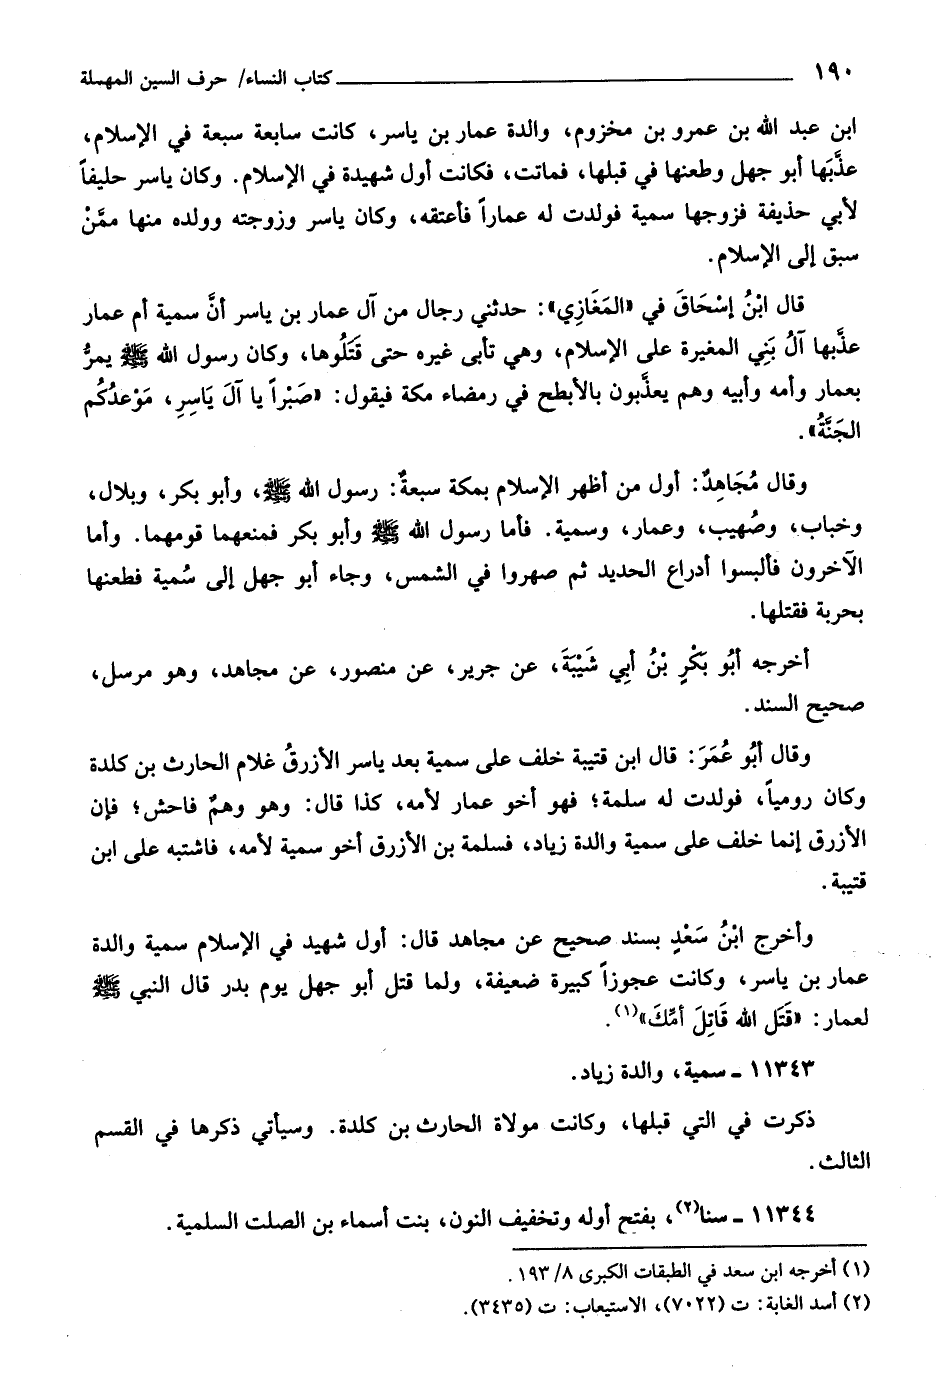 ١٩٠ كتاب النساء/ حرف السين المهملة
ابن عبد الله بن عمرو بن مخزوم، والدة عمار بن ياسر، كانت سابعة سبعة في الإسلام،
عذَّبَها أبو جهل وطعنها في قبلها، فماتت، فكانت أول شهيدة في الإسلام. وكان ياسر حليفاً
لأبي حذيفة فزوجها سمية فولدت له عماراً فأعتقه، وكان ياسر وزوجته وولده منها ممَّنْ
سبق إلى الإسلام.
قال ابْنُ إسْحَاقَ في «المَغَازِي»: حدثني رجال من آل عمار بن ياسر أنَّ سمية أم عمار
عذَّبها آلُ بَنِي المغيرة على الإسلام، وهي تأبى غيره حتى قَتَلُوها، وكان رسول الله ﷺ يمرُّ
بعمار وأمه وأبيه وهم يعذَّبون بالأبطح في رمضاء مكة فيقول: «صَبْراً يا آلَ يَاسِرِ، مَوْعدُكُم
الجَنَّةُ».
وقال مُجَاهِدٌ: أول من أظهر الإسلام بمكة سبعةٌ: رسول الله ﷺ، وأبو بكر، وبلال،
وخباب، وصُهيب، وعمار، وسمية. فأما رسول الله ﷺ وأبو بكر فمنعهما قومهما. وأما
الآخرون فألبسوا أدراع الحديد ثم صهروا في الشمس، وجاء أبو جهل إلى سُمية فطعنها
بحربة فقتلها.
أخرجه أبُو بَكْرٍ بْنُ أبِي شَيْبَةَ، عن جرير، عن منصور، عن مجاهد، وهو مرسل،
صحيح السند.
وقال أبُو عُمَرَ: قال ابن قتيبة خلف على سمية بعد ياسر الأزرقُ غلام الحارث بن كلدة
وكان رومياً، فولدت له سلمة؛ فهو أخو عمار لأمه، كذا قال: وهو وهمٌ فاحش؛ فإن
الأزرق إنما خلف على سمية والدة زياد، فسلمة بن الأزرق أخو سمية لأمه، فاشتبه على ابن
قتيبة.
وأخرج ابْنُ سَعْدٍ بسند صحيح عن مجاهد قال: أول شهيد في الإسلام سمية والدة
عمار بن ياسر، وكانت عجوزاً كبيرة ضعيفة، ولما قتل أبو جهل يوم بدر قال النبي ﷺ
لعمار: «قَتَل الله قَاتِلَ أمِّكَ»(١).
١١٣٤٣ ـ سمية، والدة زياد.
ذكرت في التي قبلها، وكانت مولاة الحارث بن كلدة. وسيأتي ذكرها في القسم
الثالث.
١١٣٤٤ ـ سنا(٢)، بفتح أوله وتخفيف النون، بنت أسماء بن الصلت السلمية.
(١) أخرجه ابن سعد في الطبقات الكبرى ٨/ ١٩٣.
(٢) أسد الغابة: ت (٧٠٢٢)، الاستيعاب: ت (٣٤٣٥).